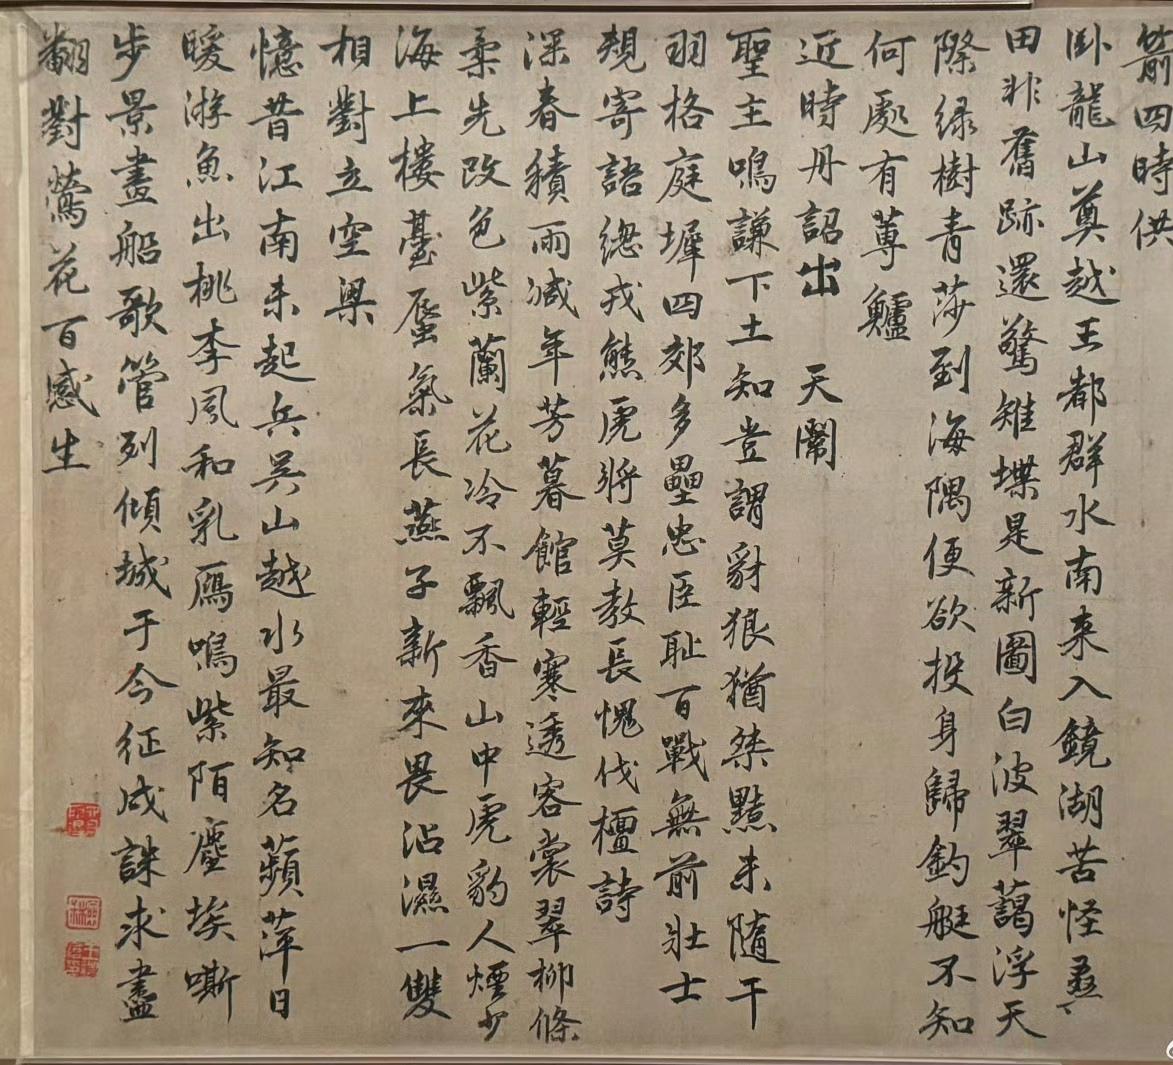 箭四時供
卧龍山奠越王都群水南來入鏡湖苦怪桑
田非舊跡還驚雉堞是新圖白波翠藹浮天
際綠樹青莎到海隅便欲投身歸釣艇不知
何處有蓴鱸
近時丹詔出 天閽
聖主鳴謙下土知豈謂豺狼猶桀黠未隨干
羽格庭墀四郊多壘忠臣恥百戰無前壯士
規寄語總戎熊虎將莫教長愧伐檀詩
深春積雨減年芳暮館輕寒透客裳翠柳條
柔先改色紫蘭花冷不飄香山中虎豹人煙少
海上樓臺蜃氣長燕子新來畏沾濕一雙
相對立空梁
憶昔江南未起兵吳山越水最知名蘋萍日
暖游魚出桃李風和乳鴈鳴紫陌塵埃嘶
步景畫船歌管列傾城于今征戍誅求盡
翻對鶯花百感生